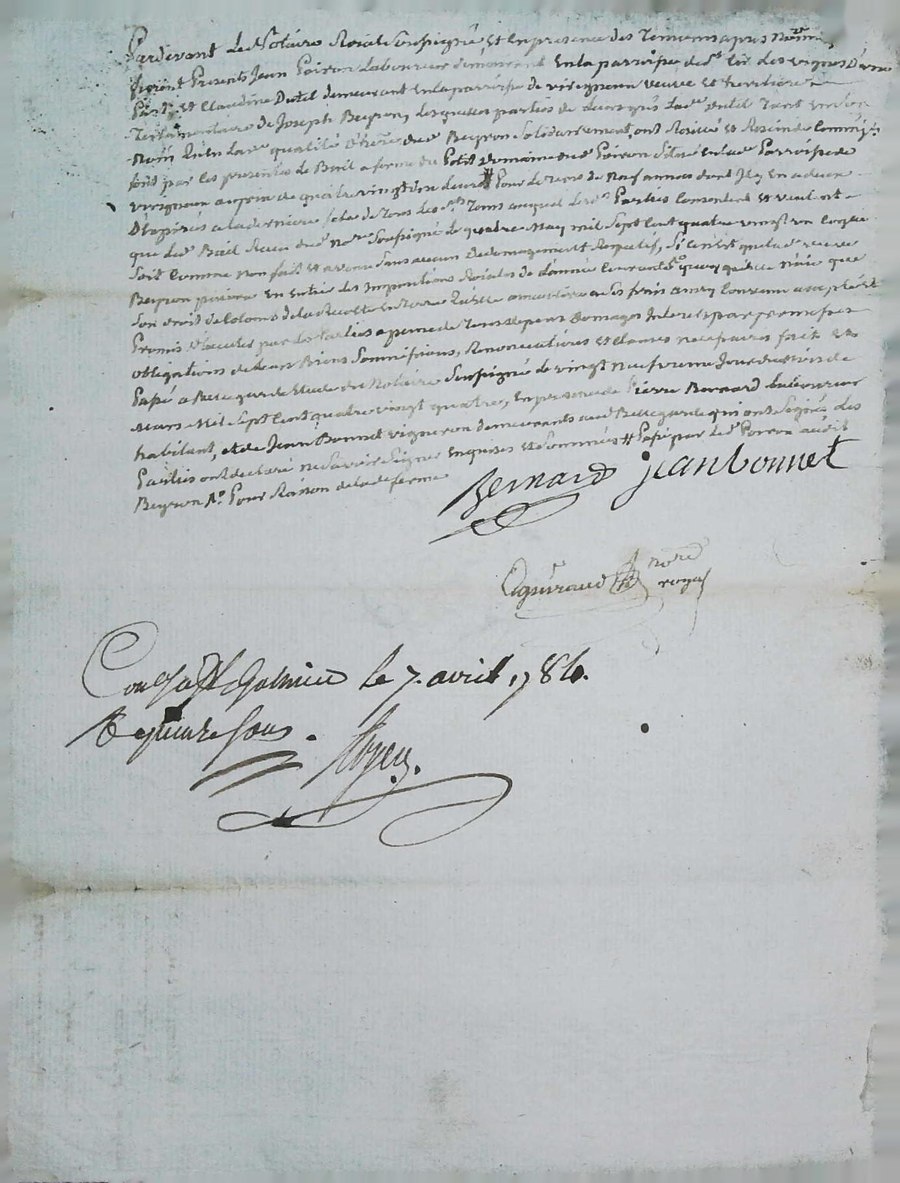 Pardevant Le Notaire Roial Soussigné Et En presence des Temoins apres Nommés
furent Presents Jean Poiron Laboureur demeurant En la parroisse de St des vignes D'une
Part, Et Claudine Dutel demeurant En la parroisse de virigneux veuve et heritiere
Testamentaire de Joseph Beyron, Lesquelles parties de Leur gré Lad. dutel Tant En son
Nom Qu'en Lad. qualité d'her. dud. Beyron Solidairement, ont Resilié et Resindé Comme ils
font par les presentes Le Bail a ferme du Petit Domaine dud. Poiron Situé En lad. Parroisse de
virigneux au prix de quatre vingt livres # Pour Le tems de Neuf années dont Il y En a deux
D'Expirés a la derniere fete de Tous Les Sts Tems auquel Lesd. Parties Consentent Et veulent
que led. Bail Recu dud. Nore Soussigné Le quatre May mil Sept Cent quatre vingt un
Soit Comme Non fait Et avenu Sans aucun Dedomagement Respectif, Si Ce n'est que lad. veuve
Beyron paiera En Entier Les Impositions Roiales de L'année Courante
Son droit de Colonne de la Recolte En Terre a Ses frais Ainsy Convenu accepté Et
Promis Executer par Les Parties a peine de Tous depens Domages Interets par foy
obligations de Leurs Biens Soumissions, Renonciations Et Clauses necessaires fait Et
Passé a Bellegarde Etude du Notaire Soussigné Le vingt neufvieme Jour du Mois de
Mars Mil Sept Cent quatre vingt quatre, En presence de Pierre Bernard Laboureur
habitant, et de Jean Bonnet vigneron demeurants aud. Bellegarde qui ont Signés Les
Parties ont declaré ne Savoir Signer Enquises Et Sommées # Passé par Led. Poiron audit
Beyron Pour Raison de lad. ferme
Bernard jean bonnet
guiraud nore
royal
Con. a St Galmier le 7. avril 1784.
Reçu sous.